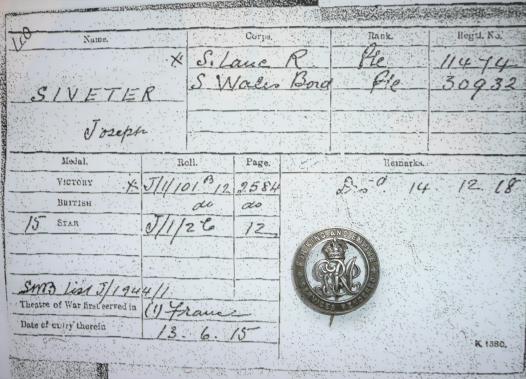 Name. Corps. Rank. Regtl. No.
X S. Lanc R Pte 11474
S Wales Bord Pte 30932
SIVETER
Joseph
Medal. Roll. Page. Remarks.
VICTORY X J/1/101 B 12 2584 Dis'd 14. 12. 18
BRITISH do do
15 STAR J/1/2 C 12
SWB List J/1944/1
Theatre of War first served in (1) France
Date of entry therein 13. 6. 15
K 1380.